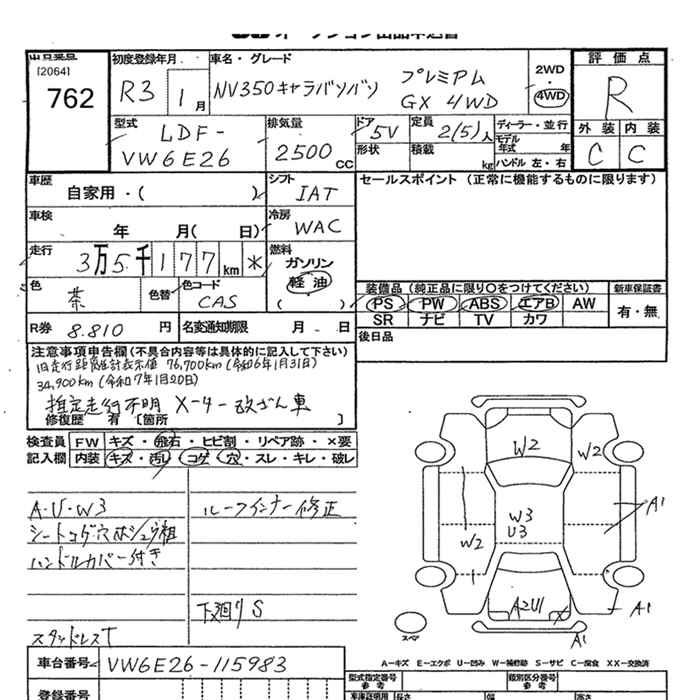 オークション出品申込書
出品番号 初度登録年月 車名・グレード 評価点
[2064]
762
R3 1月 NV350キャラバンバン プレミアム GX 4WD 2WD・4WD R
型式 排気量 ドア 定員 ディーラー・並行 外装 内装
LDF-VW6E26 2500cc 5V 2(5)人 モデル年式 年 C C
形状 積載 kg ハンドル 左・右
車歴 シフト セールスポイント (正常に機能するものに限ります)
自家用・( ) IAT
車検 冷房
年 月( 日) WAC
走行 燃料
3万5千177km * ガソリン 軽油 ( )
色 色替 色コード 装備品 (純正品に限り○をつけてください) 新車保証書
茶 CAS PS PW ABS エアB AW 有・無
SR ナビ TV カワ
R券 8.810円 名変通知期限 月 - 日 後日品
注意事項申告欄 (不具合内容等は具体的に記入して下さい)
旧走行距離計表示値 76,700km (令和6年1月31日)
34,900km (令和7年1月20日)
推定走行不明 メーター改ざん車
修復歴 有 [箇所 ]
検査員 FW キズ・飛石・ヒビ割・リペア跡・×要
記入欄 内装 キズ・汚レ・コゲ・穴・スレ・キレ・破レ
A・U・W3 ルーフインナー修正
シートコゲ穴ホシュウ粗
ハンドルカバー付き
下廻りS
スタッドレスT
W2 W2
W3
U3
W2
A1
A2U1
A1
A1
スペア
A―キズ E―エクボ U―凹み W―補修跡 S―サビ C―腐食 XX―交換済
車台番号 VW6E26-115983
登録番号 型式指定番号 参考 類別区分番号 参考
車庫証明用 長さ 幅 高さ